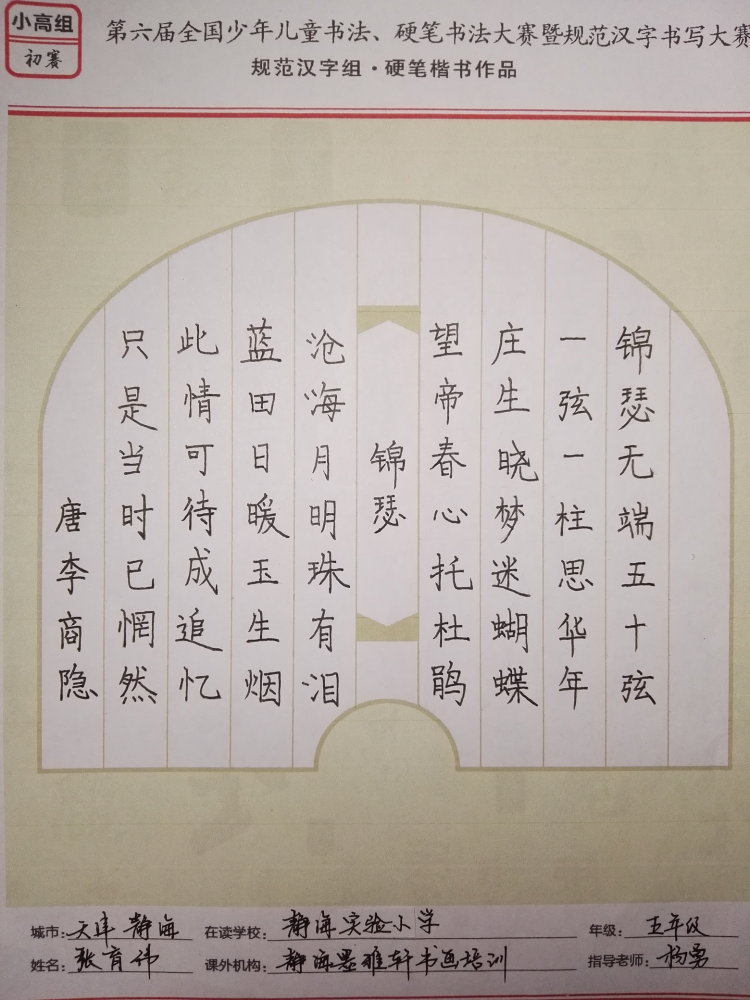 小高组
初赛
第六届全国少年儿童书法、硬笔书法大赛暨规范汉字书写大赛
规范汉字组·硬笔楷书作品
锦瑟无端五十弦
一弦一柱思华年
庄生晓梦迷蝴蝶
望帝春心托杜鹃
锦瑟
沧海月明珠有泪
蓝田日暖玉生烟
此情可待成追忆
只是当时已惘然
唐李商隐
城市：天津静海 在读学校：静海实验小学 年级：五年级
姓名：张育伟 课外机构：静海墨雅轩书画培训 指导老师：杨勇